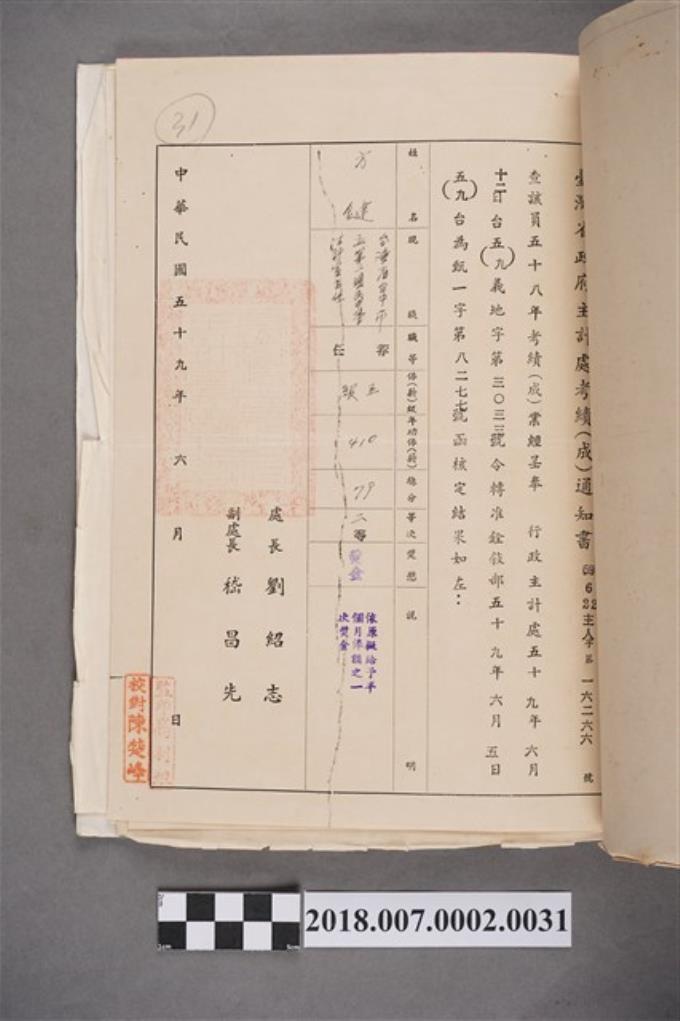 31
臺灣省政府主計處考績(成)通知書
59 6 22主人字第一六二六六號
查該員五十八年考績(成)業經呈奉 行政主計處五十九年六月
十二日台五(九)義地字第三〇三三號令轉准銓敘部五十九年六月五日
(五九)台為甄一字第八二七七號函核定結果如左:
姓名
現職
職等
俸(薪)級
年功俸(薪)
總分
等次
獎懲
說明
方 健
台灣省台中市
委任
五級
410
79
二等
獎金
依原擬給予半
個月俸額之一
次獎金
處長劉紹志
副處長嵇昌先
中華民國五十九年六月日
校對陳楚峰
2018.007.0002.0031